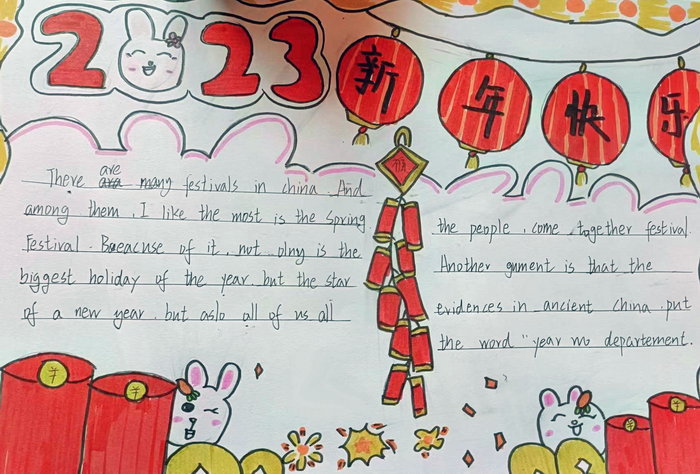 2023
新年快乐
There are many festivals in china. And
among them, I like the most is the Spring
Festival. Beacuse of it, not olny is the
biggest holiday of the year. but the star
of a new year, but aslo all of us all
the people, come, together festival.
Another gument is that the
evidences in ancient China put
the word "year mo departement.